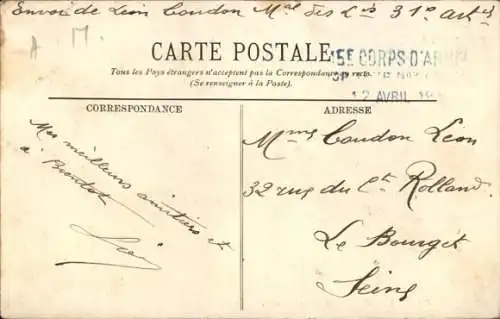 Envoi de Léon Coudon Mal des Lis 31e art
A M.
CARTE POSTALE
15E CORPS D'ARMÉE
Tous les Pays étrangers n'acceptent pas la Correspondance au recto.
(Se renseigner à la Poste).
12 AVRIL
CORRESPONDANCE
Mes meilleurs amitiers et
a Bientot
Léon
ADRESSE
Mme Coudon Leon
32 rue du Ct Rolland
Le Bourget
Seine